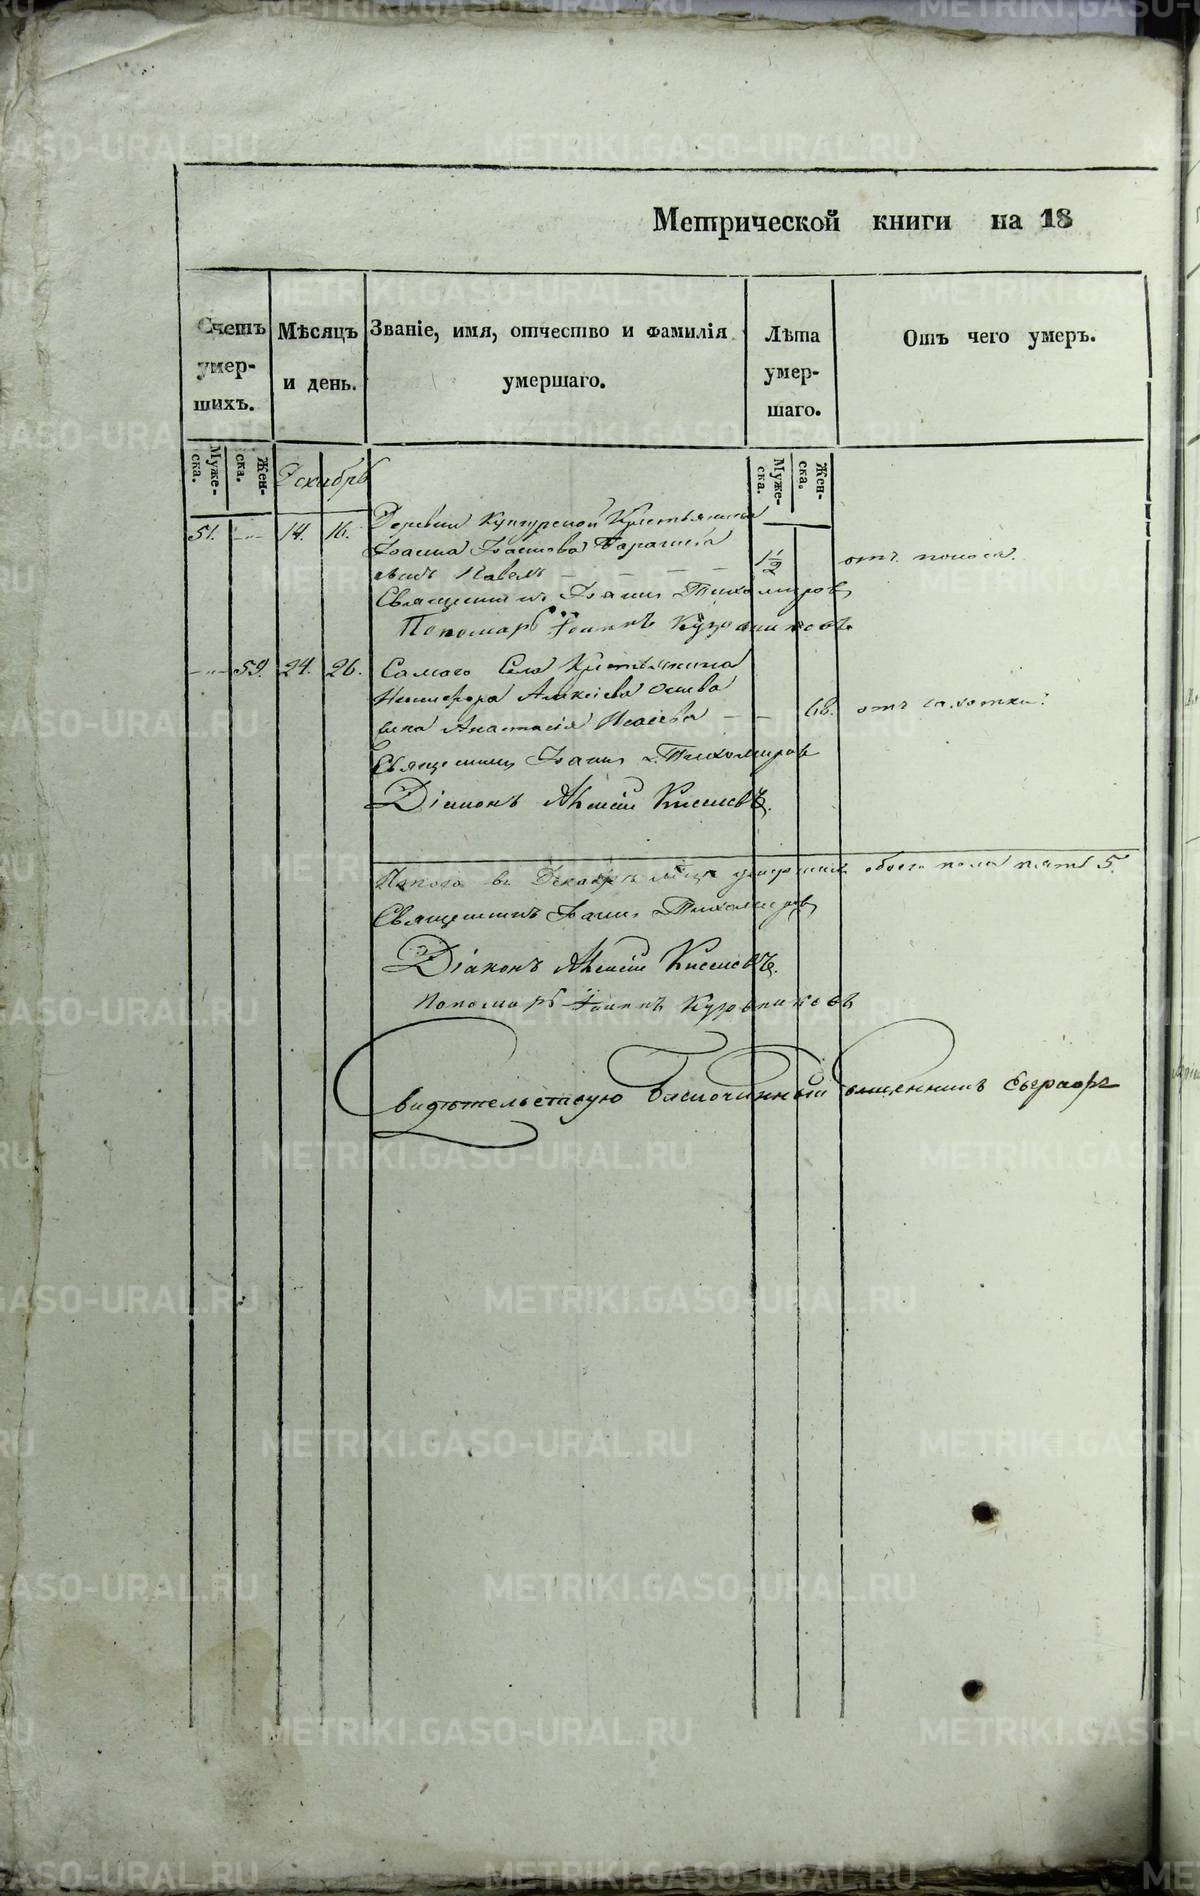 Метрической книги на 18
Счетъ умер-шихъ.
Мѣсяцъ и день.
Званіе, имя, отчество и фамилія умершаго.
Лѣта умер-шаго.
Отъ чего умеръ.
Муже-ска.
Жен-ска.
Декабрь
Муже-ска.
Жен-ска.
51. 14. 16. Деревни Кунгурской Крестьянина
Іоанна
сынъ Павелъ 1½ отъ поноса.
Священникъ Іоаннъ Тихомировъ
Пономарь Іоаннъ Кузовниковъ
59. 24. 26. Самаго Села Крестьянина
Никифора Алексѣева
жена Анастасія 68. отъ чахотки.
Священникъ Іоаннъ Тихомировъ
Діаконъ Алексій Киселевъ.
Итого въ Декабрѣ мѣсяцѣ умершихъ обоего пола пять 5.
Священникъ Іоаннъ Тихомировъ
Діаконъ Алексій Киселевъ.
Пономарь Іоаннъ Кузовниковъ
Свидѣтельствую Благочинный Священникъ Евграфъ
METRIKI.GASO-URAL.RU